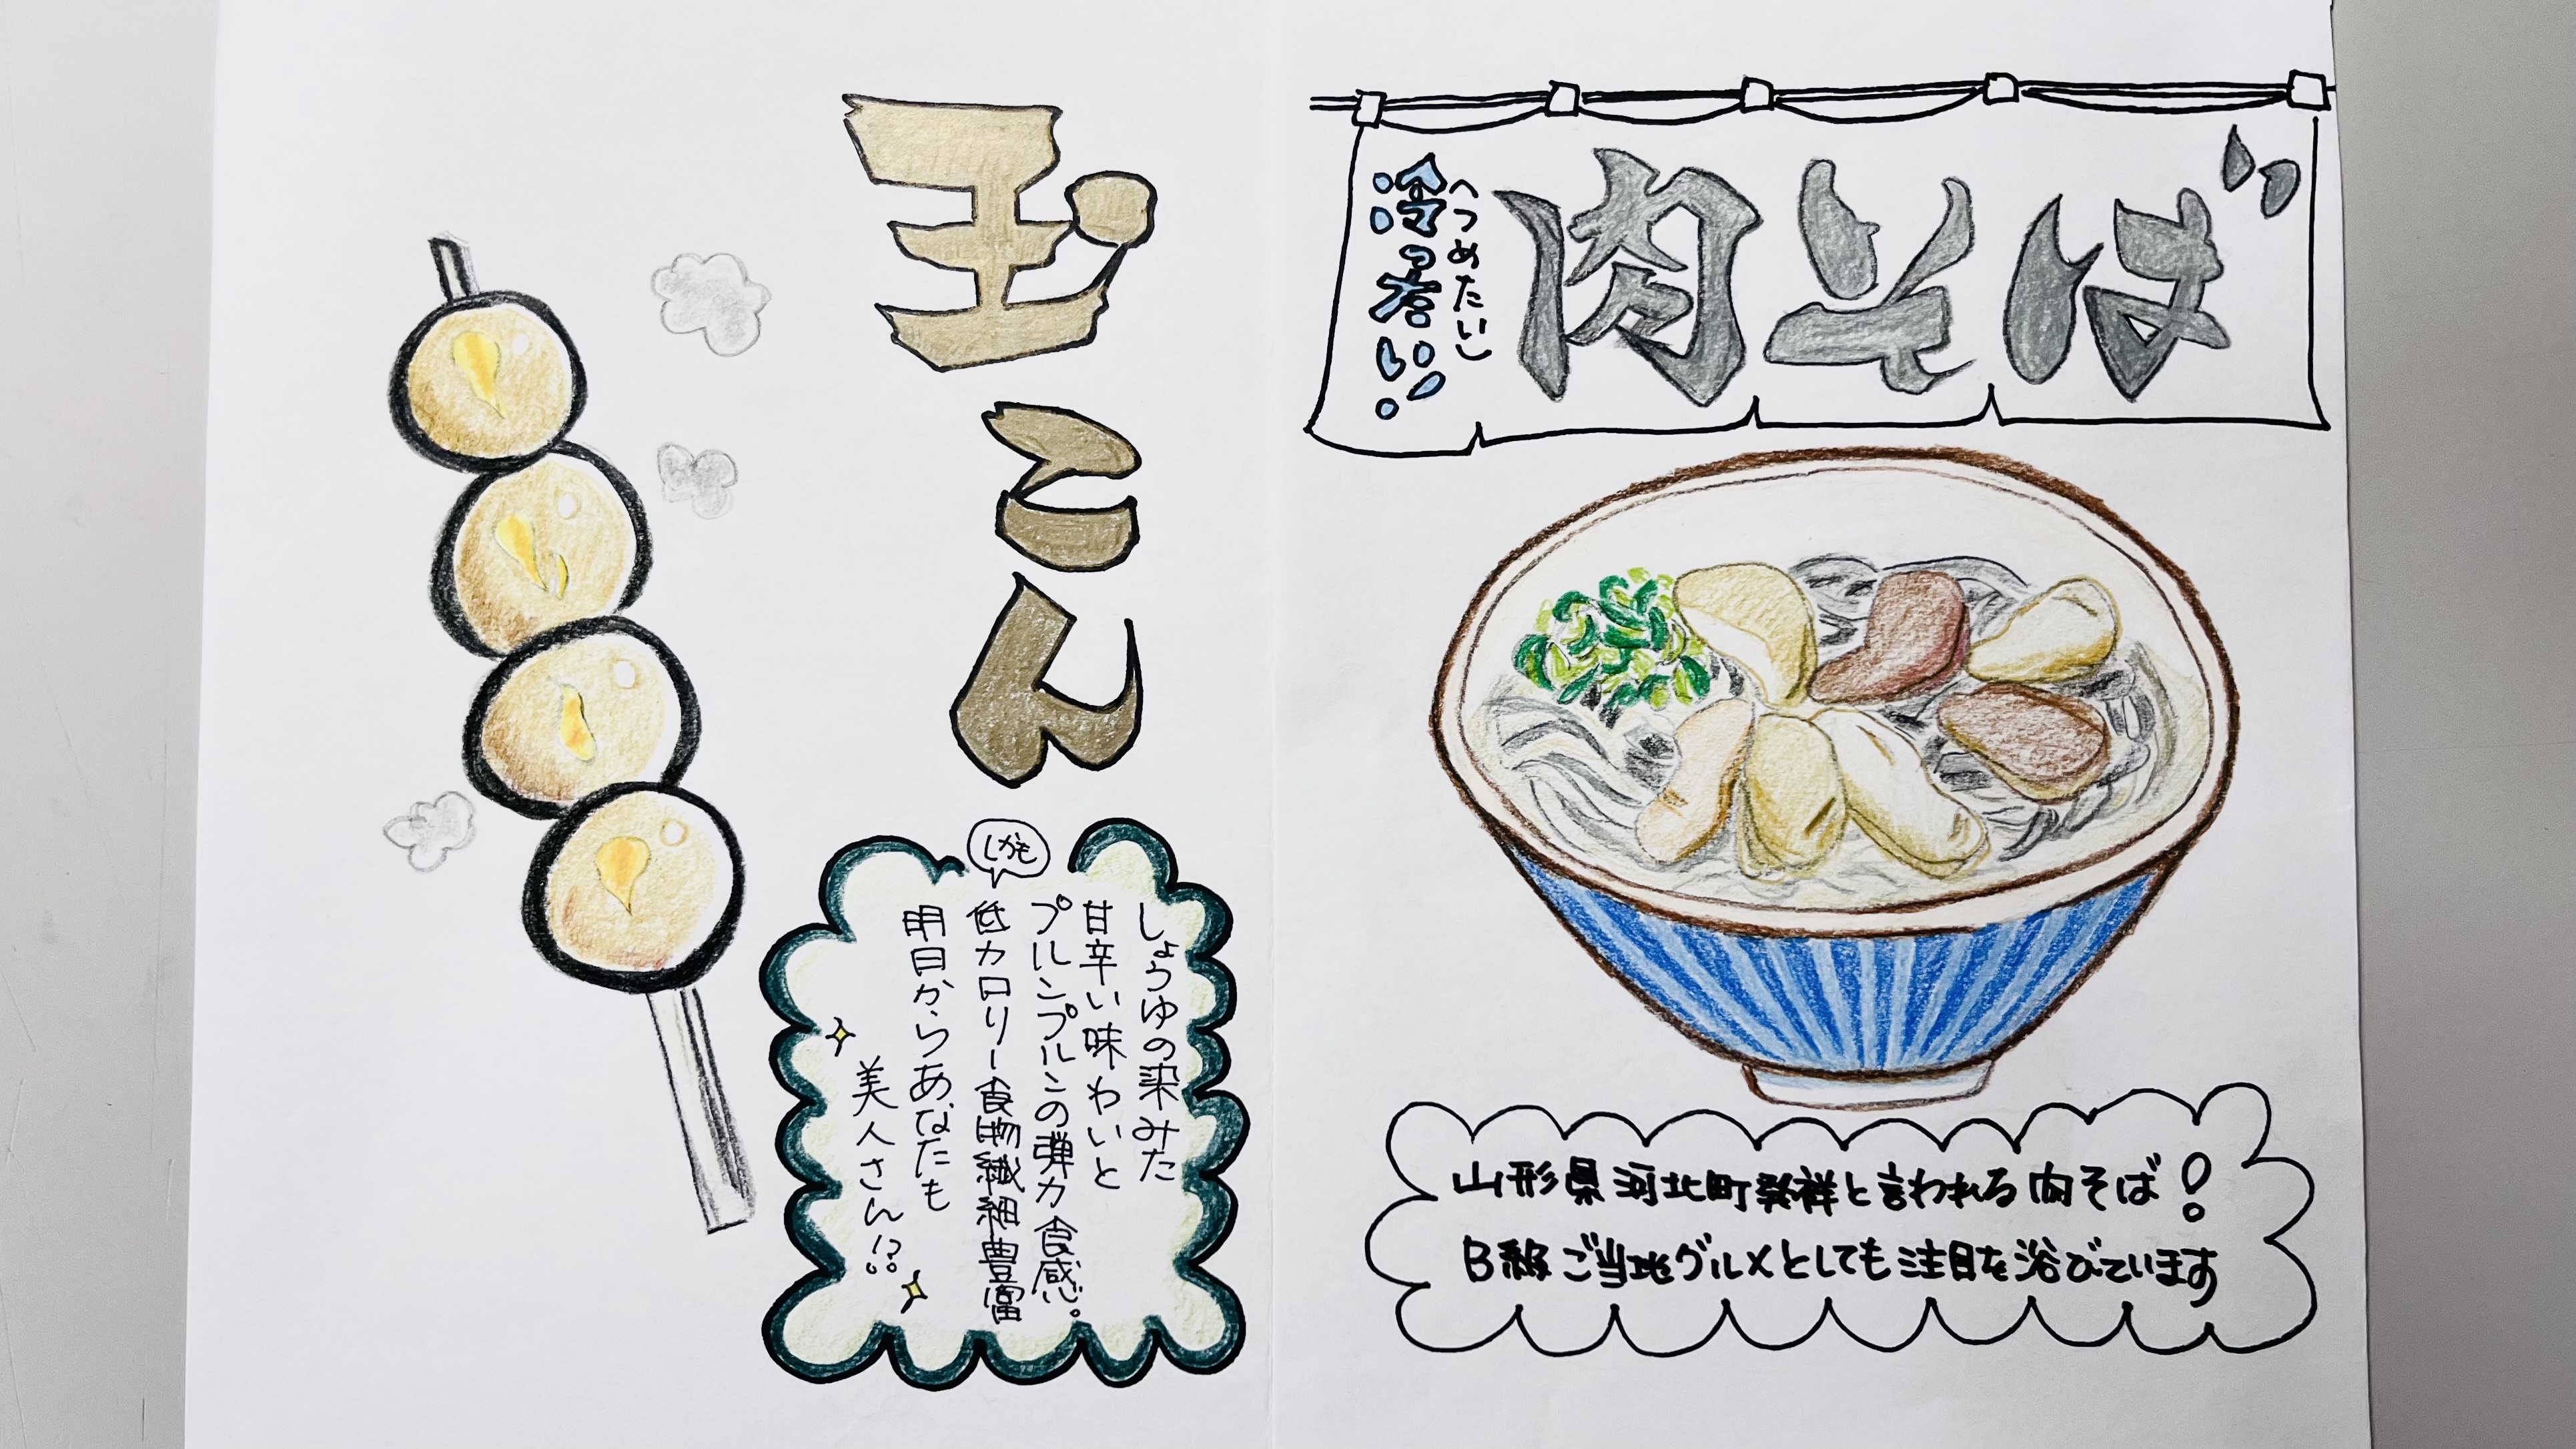 玉こん
しょうゆの染みた
甘辛い味わいと
プルンプルンの弾力食感。
しかも
低カロリー食物繊細豊富
明日からあなたも
美人さん!?
肉そば
つめたい
山形県河北町発祥と言われる肉そば!
B級ご当地グルメとしても注目を浴びています